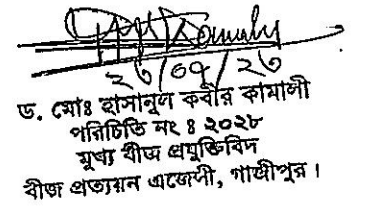 ২৩/০৭/২৩
ড. মোঃ হাসানুল কবীর কামালী
পরিচিতি নং ঃ ২০২৮
মূখ্য বীজ প্রযুক্তিবিদ
বীজ প্রত্যয়ন এজেন্সী, গাজীপুর।